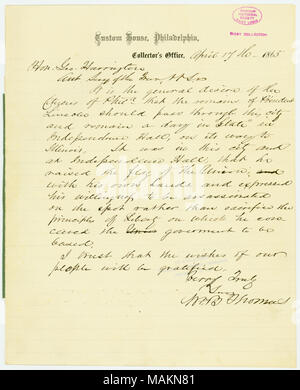 Custom House, Philadelphia,
Collector's Office, April 17th 1865
Hon. Geo. Harrington
Asst Secy of the Treas. W
It is the general desire of the
Citizens of Phila. that the remains of President
Lincoln should pass through the city
and remain a day in State in
Independence Hall, on its way to
Illinois. It was in this city and
at Independence Hall, that he
raised the flag of the Union,
with his own hands and expressed
his willingness to be assassinated
on the spot rather than sacrifice the
principles of liberty on which he con
ceived the government to be
based.
I trust that the wishes of our
people will be gratified.
Very Truly
Yours
Wm B. Thomas
alamy
Image ID: MAKN81
www.alamy.com